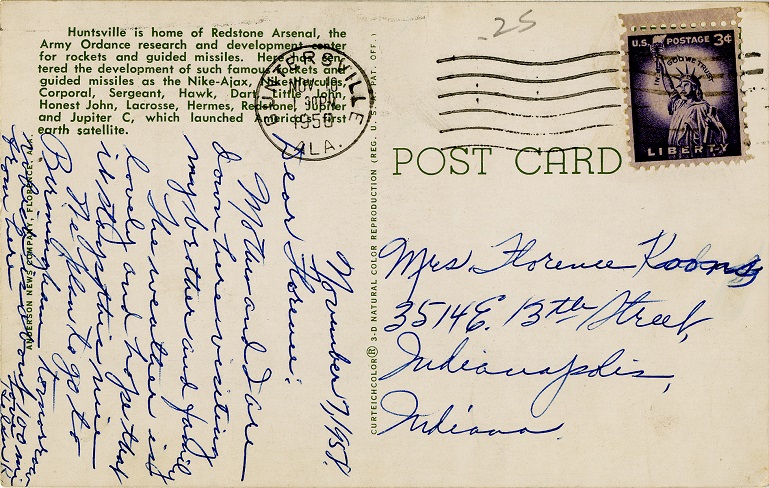 Huntsville is home of Redstone Arsenal, the
Army Ordance research and development center
for rockets and guided missiles. Here has cen-
tered the development of such famous rockets and
guided missiles as the Nike-Ajax, Nike-Hercules,
Corporal, Sergeant, Hawk, Dart, Little John,
Honest John, Lacrosse, Hermes, Redstone, Jupiter
and Jupiter C, which launched America's first
earth satellite.
.25
NOV 10
ALA.
U.S. POSTAGE 3¢
IN GOD WE TRUST
LIBERTY
POST CARD
November 7, 1958.
Dear Florence:
Mother and I are
down here visiting
my brother and family
The weather is
lovely and hope that
it stays this nice
We plan to go to
Birmingham tomorrow
100 mi.
from here
ANDERSON NEWS COMPANY, FLORENCE, ALA.
CURTEICHCOLOR® 3-D NATURAL COLOR REPRODUCTION (REG. U.S. PAT. OFF.)
Mrs. Florence Koons
3514 E. 13th Street,
Indianapolis,
Indiana.